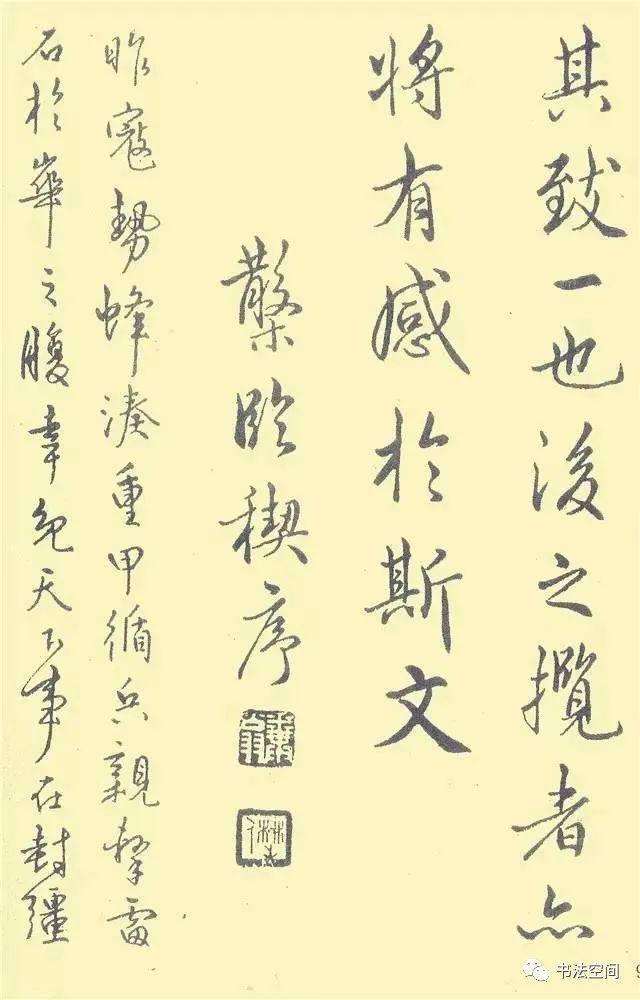 其致一也後之攬者亦
將有感於斯文
檠臨稧序
昨寇勢蜂湊重甲循兵親擊雷
石於華之腹幸免天下事在封疆
书法空间
9